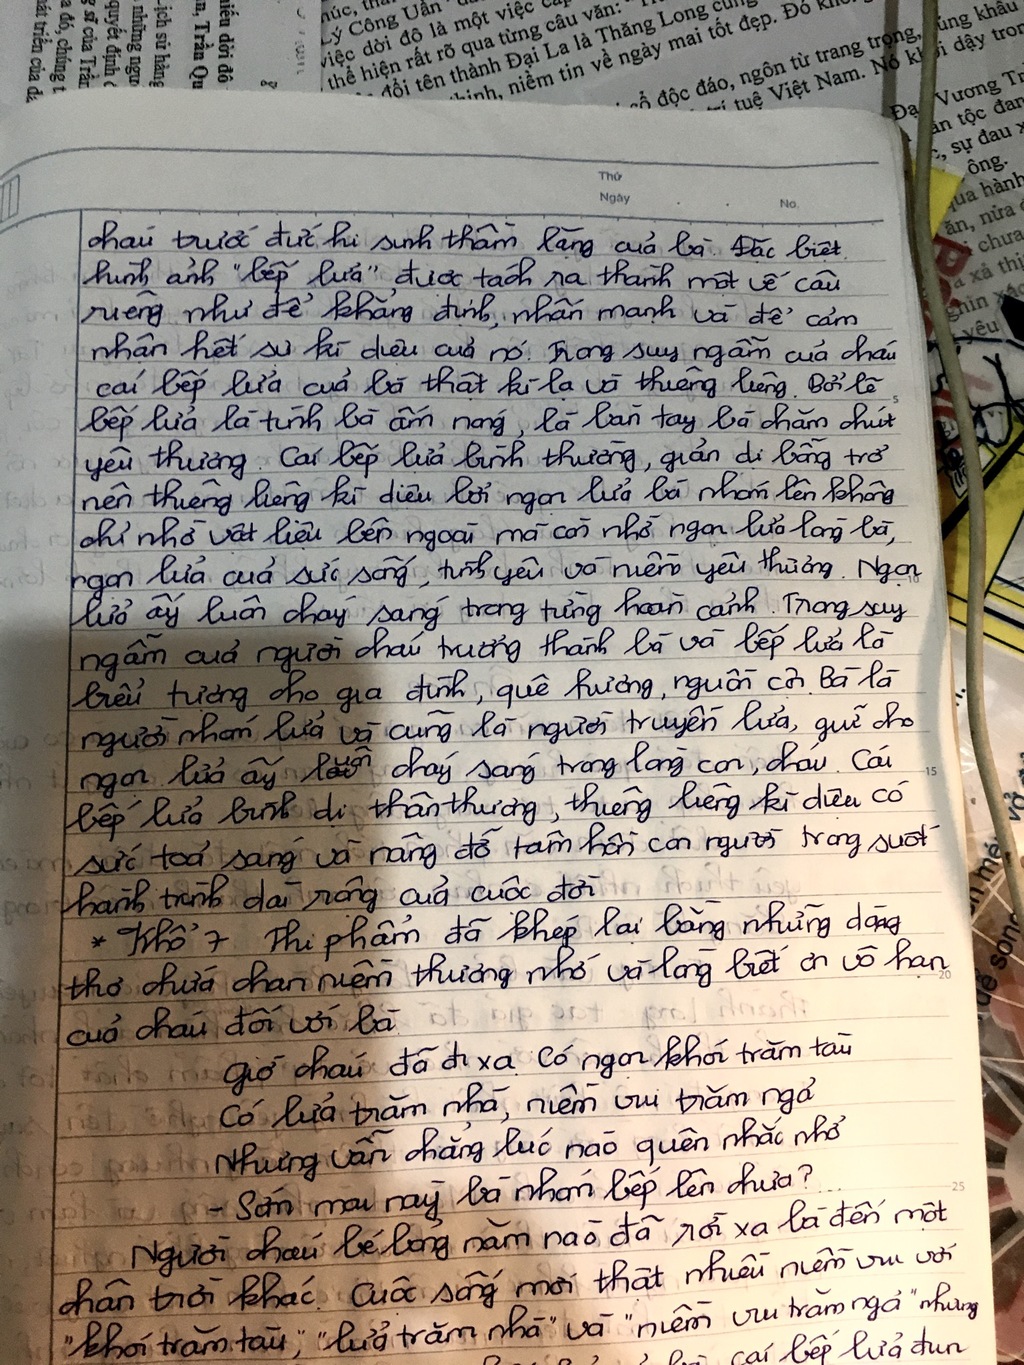 Lý Công Uẩn
việc dời đô là một việc
thể hiện rất rõ qua từng câu văn:
đổi tên thành Đại La là Thăng Long cũng
niềm tin về ngày mai tốt đẹp. Đó
cổ độc đáo, ngôn từ trang trọng,
trí tuệ Việt Nam. Nó khơi dậy
Thứ
Ngày
No.
cháu trước đức hi sinh thầm lặng của bà. Đặc biệt
hình ảnh "bếp lửa" được tách ra thành một vế câu
riêng như để khẳng định, nhấn mạnh và để cảm
nhận hết sự kì diệu của nó. Trong suy ngẫm của cháu
cái bếp lửa của bà thật kì lạ và thiêng liêng. Bởi lẽ
5
bếp lửa là tình bà ấm nóng, là bàn tay bà chăm chút
yêu thương. Cái bếp lửa bình thường, giản dị bỗng trở
nên thiêng liêng kì diệu bởi ngọn lửa bà nhóm lên không
chỉ nhờ vật liệu bên ngoài mà còn nhờ ngọn lửa lòng bà,
ngọn lửa của sức sống, tình yêu và niềm yêu thương. Ngọn
10
lửa ấy luôn cháy sáng trong từng hoàn cảnh. Trong suy
ngẫm của người cháu trưởng thành bà và bếp lửa là
biểu tượng cho gia đình, quê hương, nguồn cội. Bà là
người nhóm lửa và cũng là người truyền lửa, giữ cho
ngọn lửa ấy luôn cháy sáng trong lòng con, cháu. Cái
15
bếp lửa bình dị thân thương, thiêng liêng kì diệu có
sức toả sáng và nâng đỡ tâm hồn con người trong suốt
hành trình dài rộng của cuộc đời
* Khổ 7 Thi phẩm đã khép lại bằng những dòng
thơ chứa chan niềm thương nhớ và lòng biết ơn vô hạn
20
của cháu đối với bà
Giờ cháu đã đi xa. Có ngọn khói trăm tàu
Có lửa trăm nhà, niềm vui trăm ngả
Nhưng vẫn chẳng lúc nào quên nhắc nhở
- Sớm mai này bà nhóm bếp lên chưa?...
25
Người cháu bé bỏng năm nào đã rời xa bà đến một
chân trời khác. Cuộc sống mới thật nhiều niềm vui với
"khói trăm tàu", "lửa trăm nhà" và "niềm vui trăm ngả" nhưng
cái bếp lửa đun